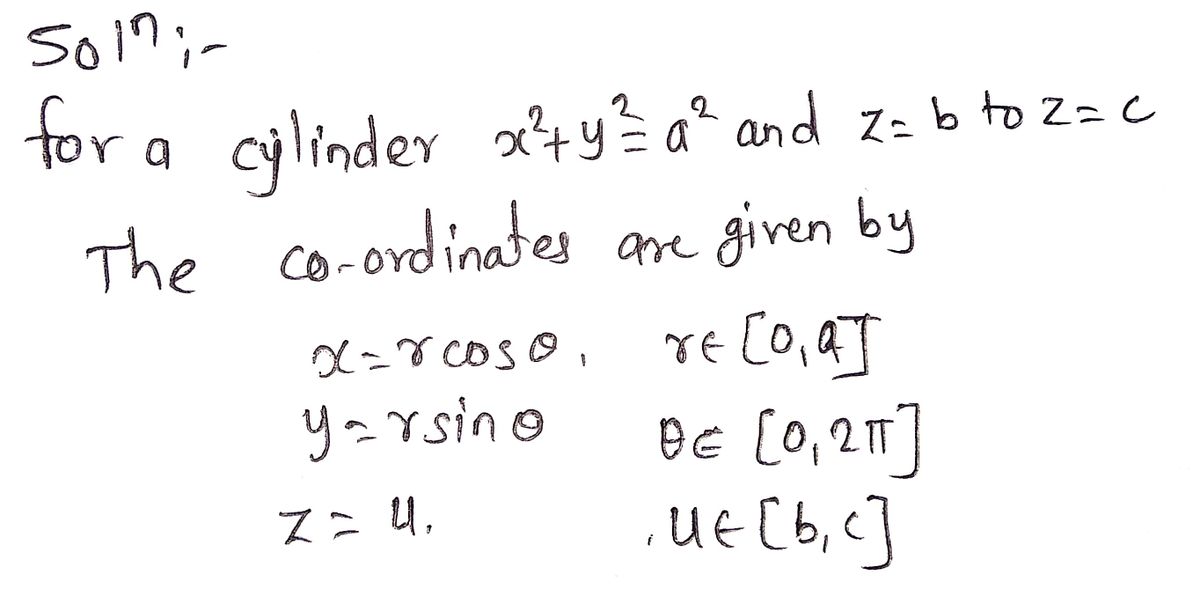 Solⁿ:-
for a cylinder x²+y²=a² and z=b to z=c
The co-ordinates are given by
x=r cosθ, r∈[0,a]
y=r sinθ θ∈[0,2π]
z=u. ,u∈[b,c]